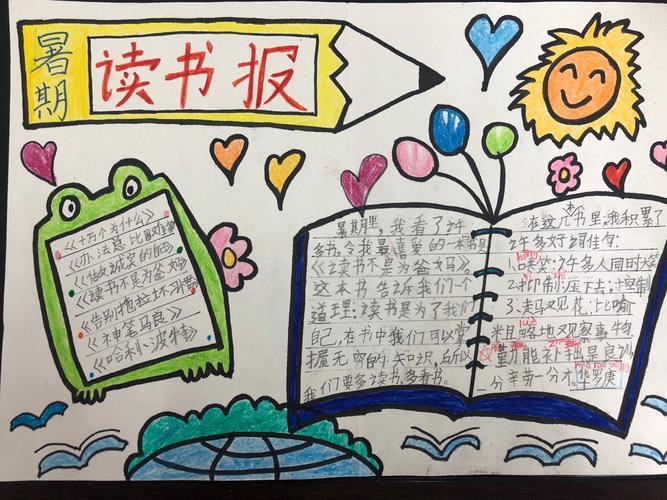 暑期
读书报
《十万个为什么》
《办法总比困难多》
《做诚实的自己》
《读书不是为爸妈》
《告别拖拉坏习惯》
《神笔马良》
《哈利·波特》
暑期里，我看了许
多书，令我最喜爱的一本书是
《读书不是为爸妈》
这本书告诉我们一个
道理：读书是为了我们
自己，在书中我们可以掌
握无穷的知识，所以
我们要多读书、多看书。
在这几书里，我积累了
许多好词佳句：
hōng
1.哄笑：许多人同时大笑
yì
2.抑制：压下去；控制
3.走马观花：比喻
lüè
粗略地观察事物
勤能补拙是良训，
一分辛劳一分才。华罗庚